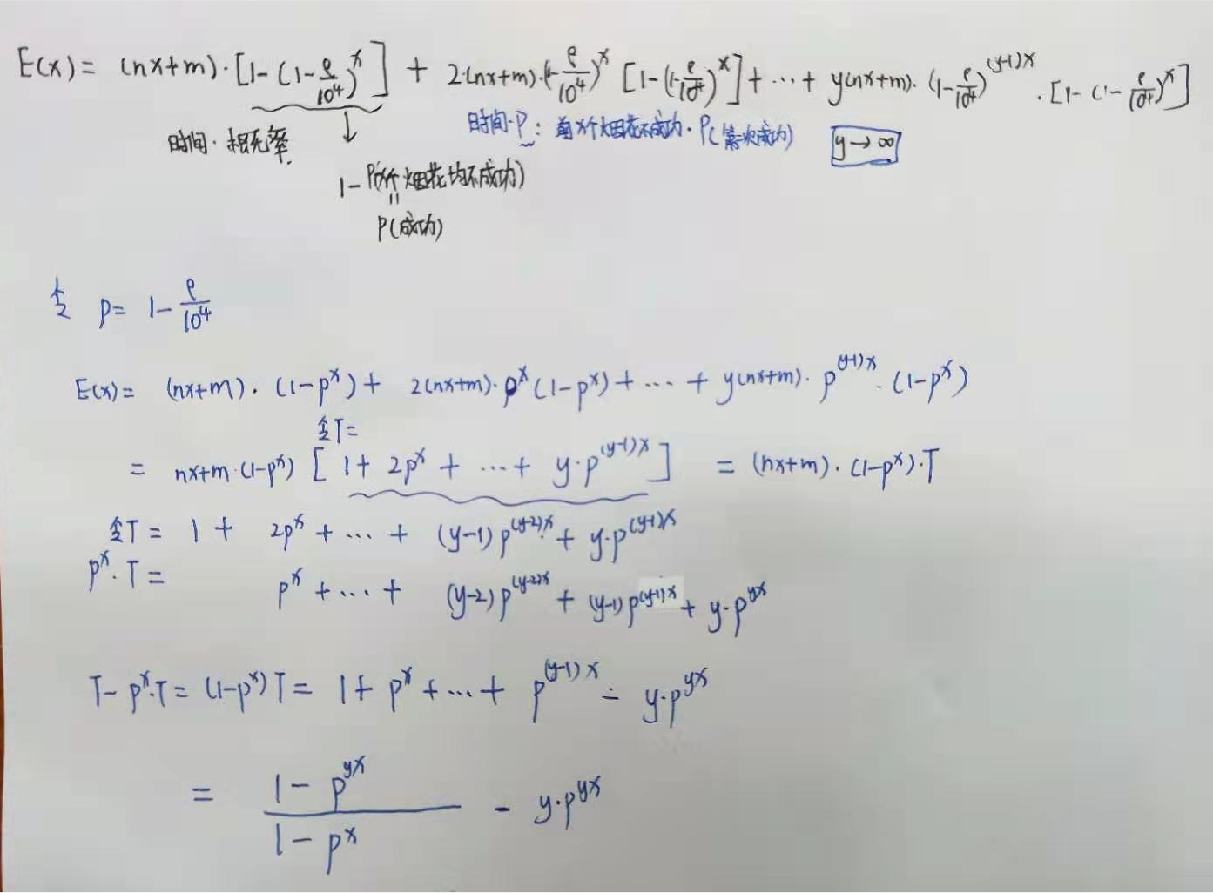 E(x) = (nx+m)·[1-(1-p/10⁴)^x] + 2·(nx+m)·(1-p/10⁴)^x [1-(1-p/10⁴)^x] + ··· + y(nx+m)·(1-p/10⁴)^(y-1)x · [1-(1-p/10⁴)^x]
时间·概率. ↓ 时间·P: 前x个烟花不成功·P(第二次成功) y→∞
1-P(x个烟花均不成功)
=
P(成功)
令 p = 1-p/10⁴
E(x) = (nx+m)·(1-p^x) + 2(nx+m)·p^x(1-p^x) + ··· + y(nx+m)·p^(y-1)x·(1-p^x)
令T=
= nx+m·(1-p^x) [1+2p^x+···+y·p^(y-1)x] = (nx+m)·(1-p^x)·T
令T = 1 + 2p^x + ··· + (y-1)p^(y-2)x + y·p^(y-1)x
p^x·T = p^x + ··· + (y-2)p^(y-2)x + (y-1)p^(y-1)x + y·p^yx
T-p^x·T = (1-p^x)T = 1+p^x+···+p^(y-1)x - y·p^yx
= (1-p^yx)/(1-p^x) - y·p^yx